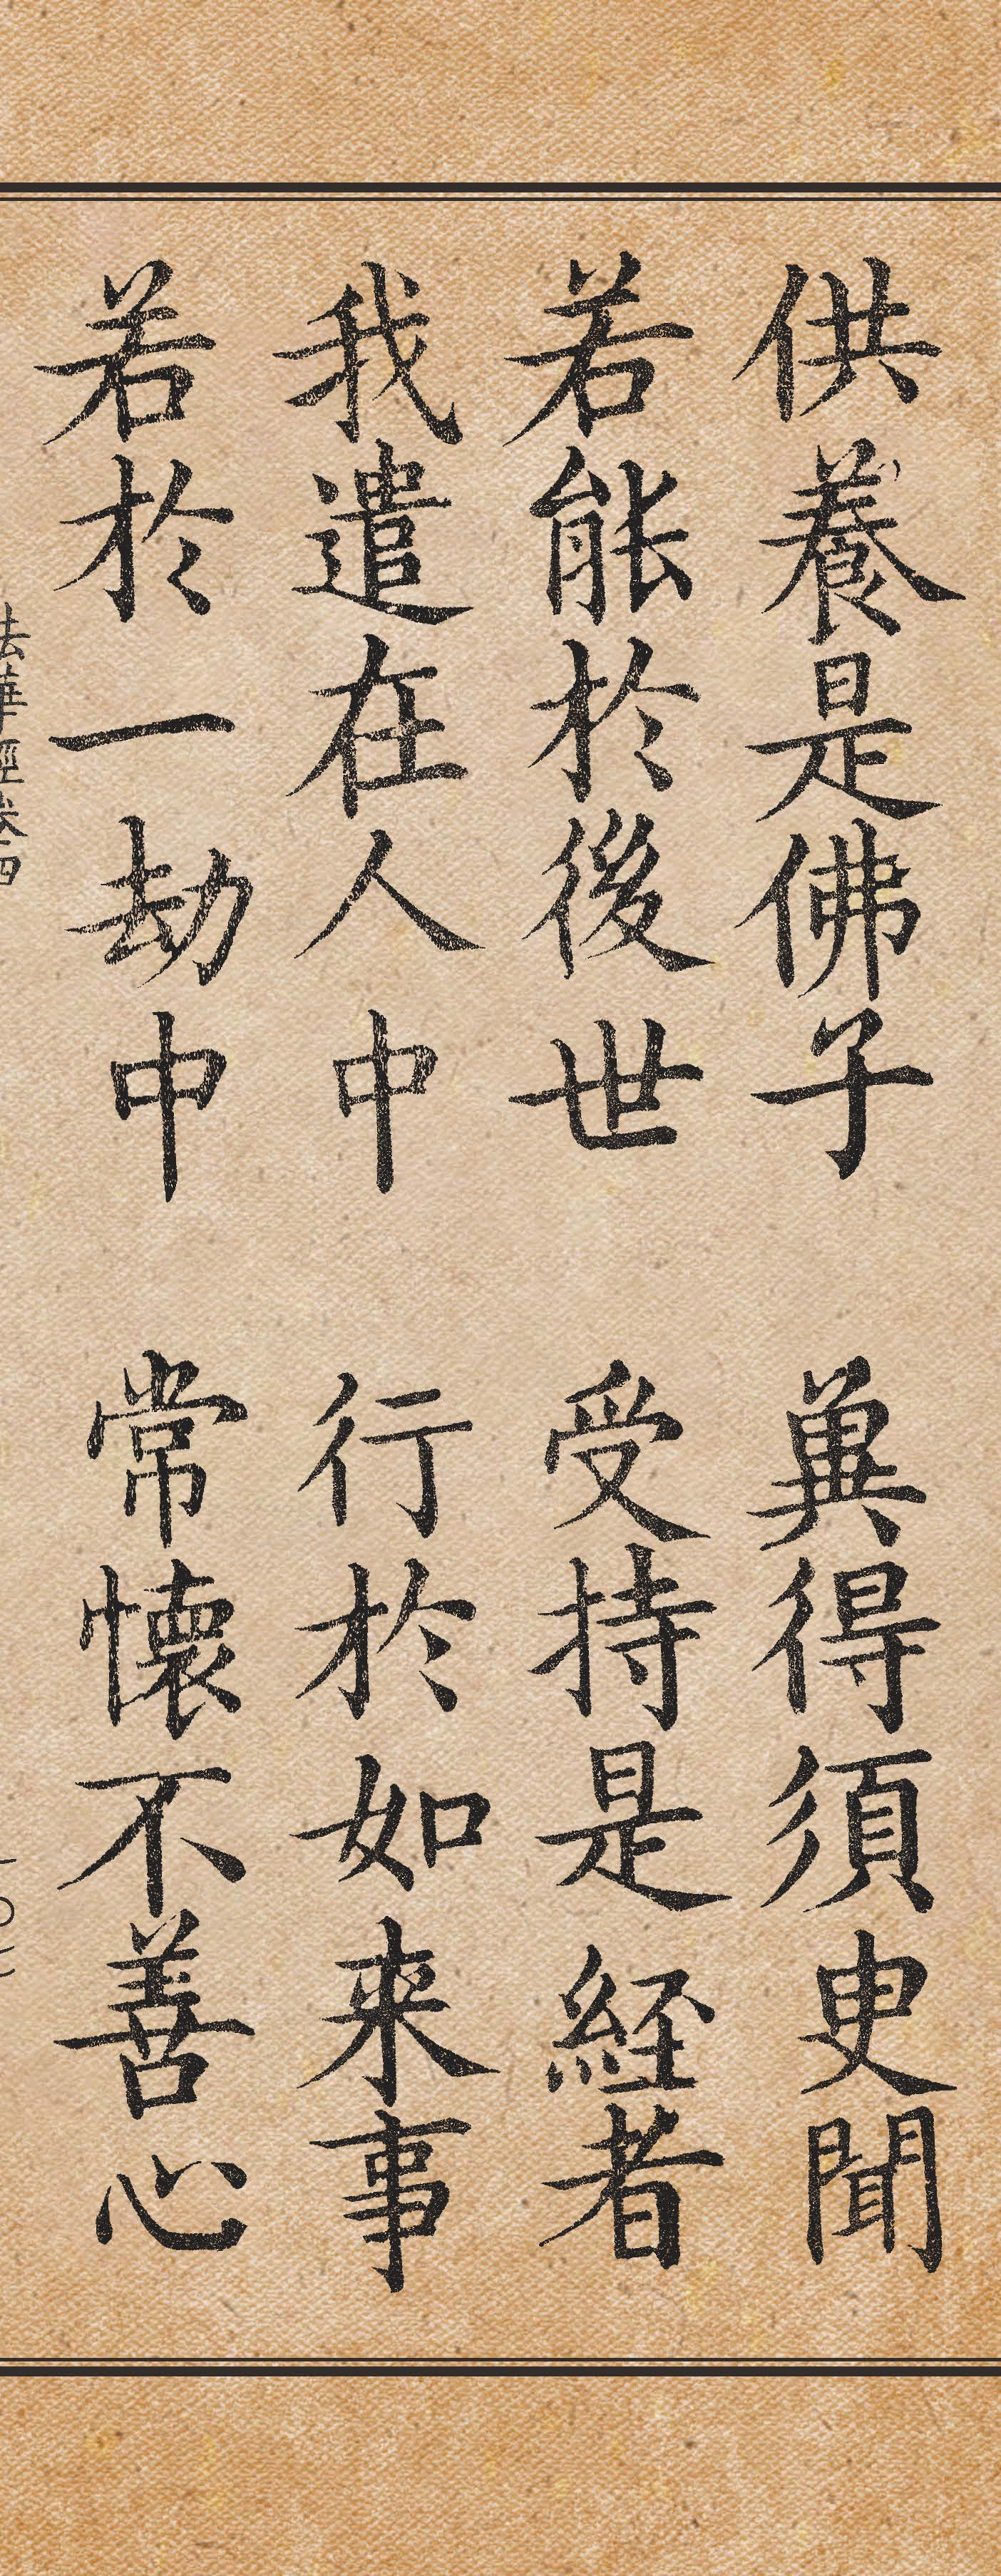 供養是佛子 冀得須臾聞
若能於後世 受持是経者
我遣在人中 行於如来事
若於一劫中 常懐不善心
法華經卷四
一〇七